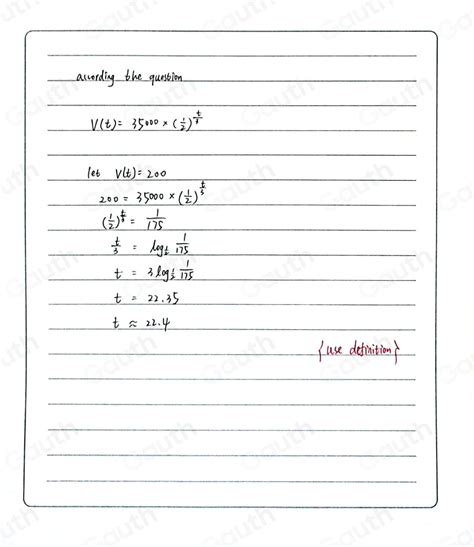 according the question
V(t) = 35000 × (1/2)^(t/3)
let V(t) = 200
200 = 35000 × (1/2)^(t/3)
(1/2)^(t/3) = 1/175
t/3 = log_(1/2) 1/175
t = 3 log_(1/2) 1/175
t = 22.35
t ≈ 22.4
{use definition}
Gauth